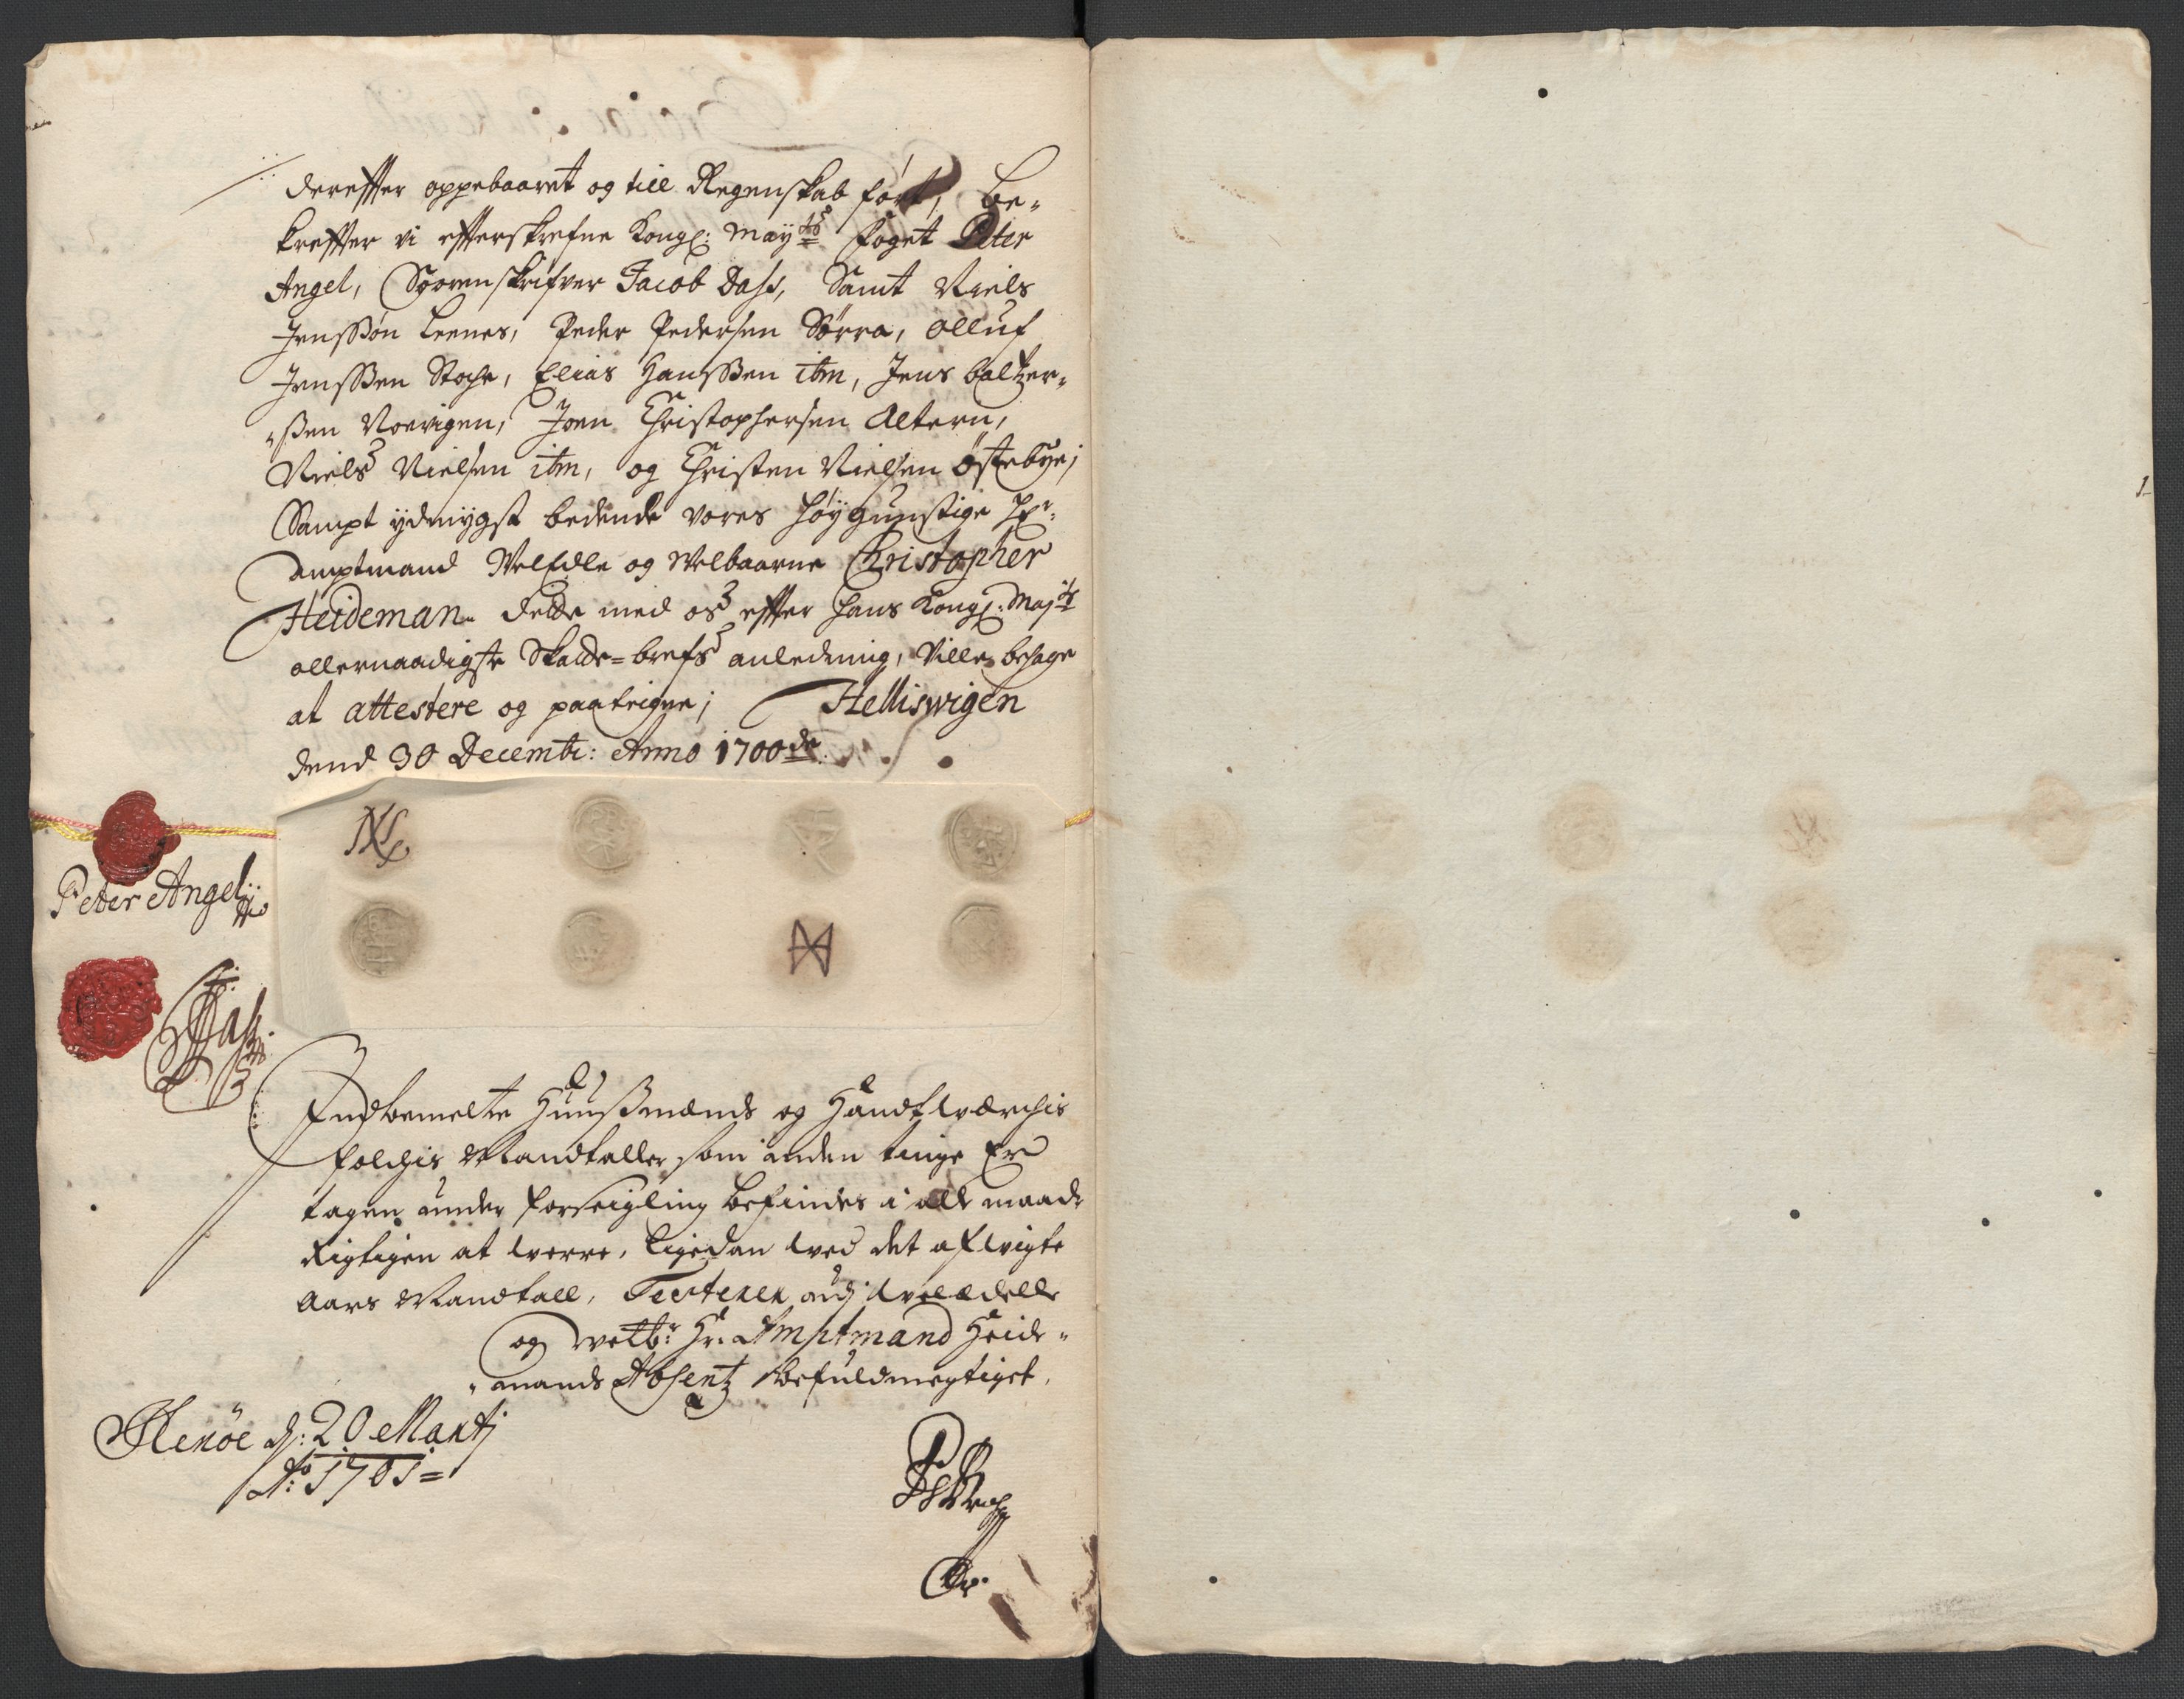 dereffter oppebaaret og till Regenskab ført, be-
kreffter vi effterskrefne Kongl: Mayts foget Peter
Angel, Soorenskrifver Jacob Dass, Samt Niels
Jenssøn Leenes, Peder Pedersen Sørra, olluf
Jenssen Stoche, Elias Hanssen itm, Jens baltzer-
-ssen Noevigen, Joen Christophersen Altern,
Niels Nielsen itm, og Christen Nielsen östebye;
Sampt ydmygst bedende vores høygunstige Hr:
amptmand Velædle og Velbaarne Christopher
Heideman. dette med os effter hans Kongl: Majts
allernaadigste Skatte=brefs anledning, ville behage
at attestere og paateigne; Helliswigen
dend 30 Decembr: Anno 1700de
Peter Angel
Dass
Indbemelte Huussmænds og Handtwærchis
folchis Mandtaller som inden tinge Er
tagen under forseigling befindes i alle maade
Rigtigen at werre, ligesom wed det afwigte
Aars Mandtall, Testerer udj welædelle
og welb: Hr: Amptmand Heide-
-mands Absentz befuldmegtiget,
Herøe d: 20 Martj
Ao 1701=